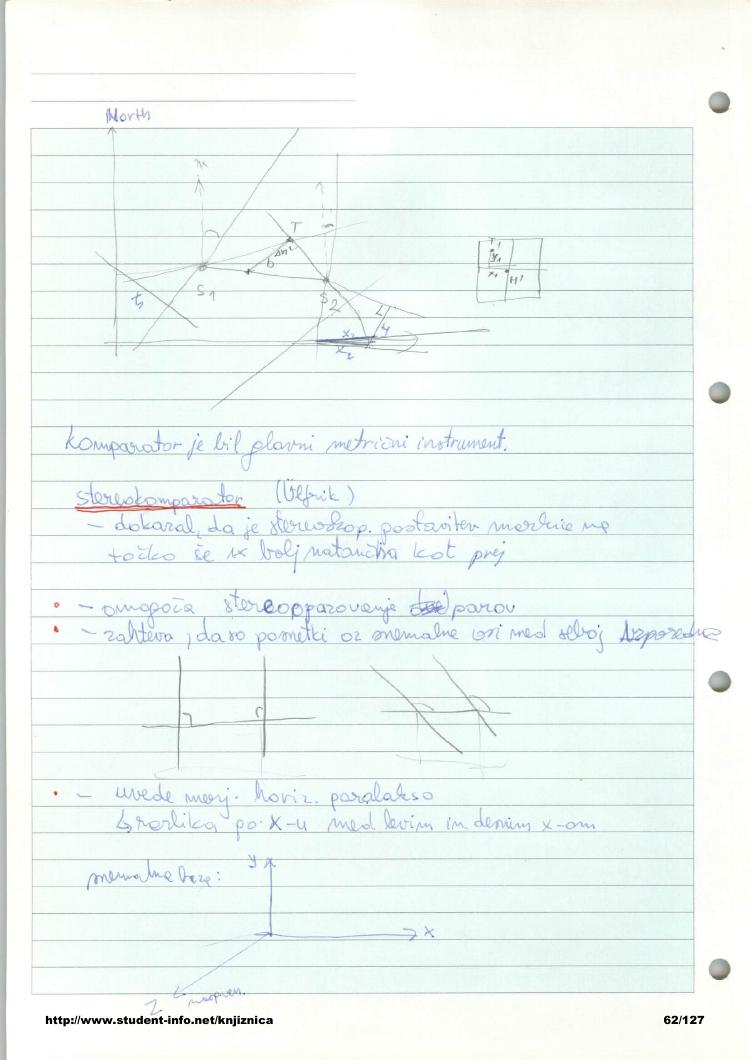 North
x
T
b
Δh
S1
S2
x2
y
x2
T1
y1
x1
H'
komparator je bil glavni metrični instrument.
stereokomparator
– dokazal, da je stereoskop. postavitev markice na
točko še 1x bolj natančna kot prej
– omogoča stereoopazovanje parov
– zahteva, da so posnetki oz snemalne osi med seboj vzporedne
– uvede merj. horiz. paralakso
↳ razlika po x-u med levim in desnim x-om
snemalna baza:
y
x
z
http://www.student-info.net/knjiznica
62/127